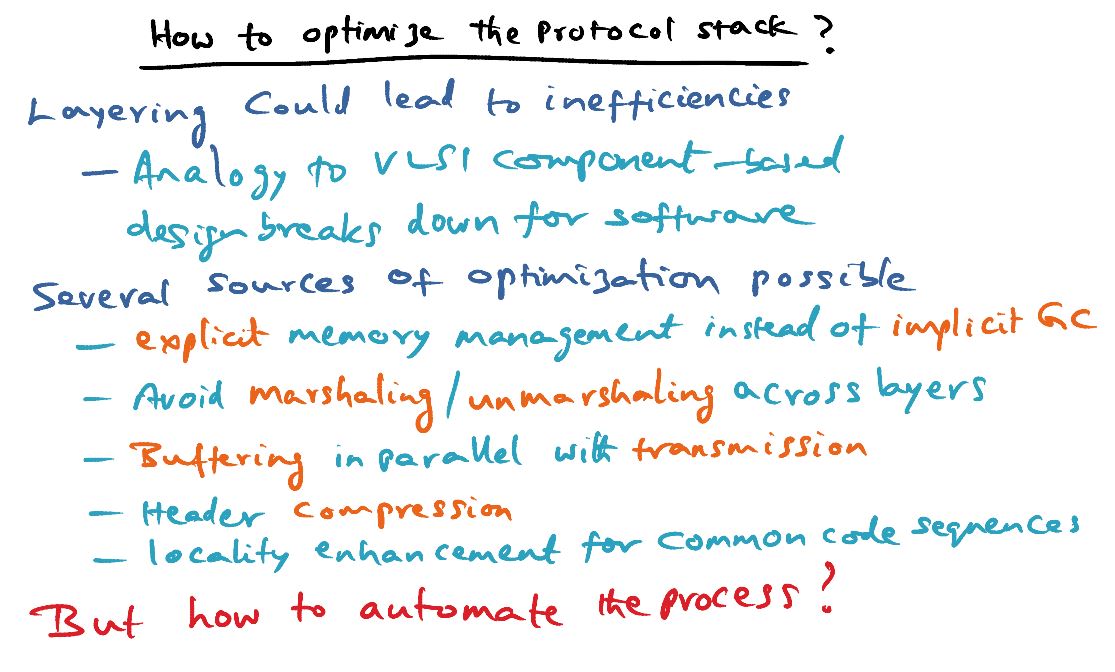 How to optimize the Protocol stack?
Layering Could lead to inefficiencies
— Analogy to VLSI component-based
design breaks down for software
Several sources of optimization possible
— explicit memory management instead of implicit GC
— Avoid marshaling/unmarshaling across layers
— Buffering in parallel with transmission
— Header compression
— locality enhancement for common code sequences
But how to automate the process?